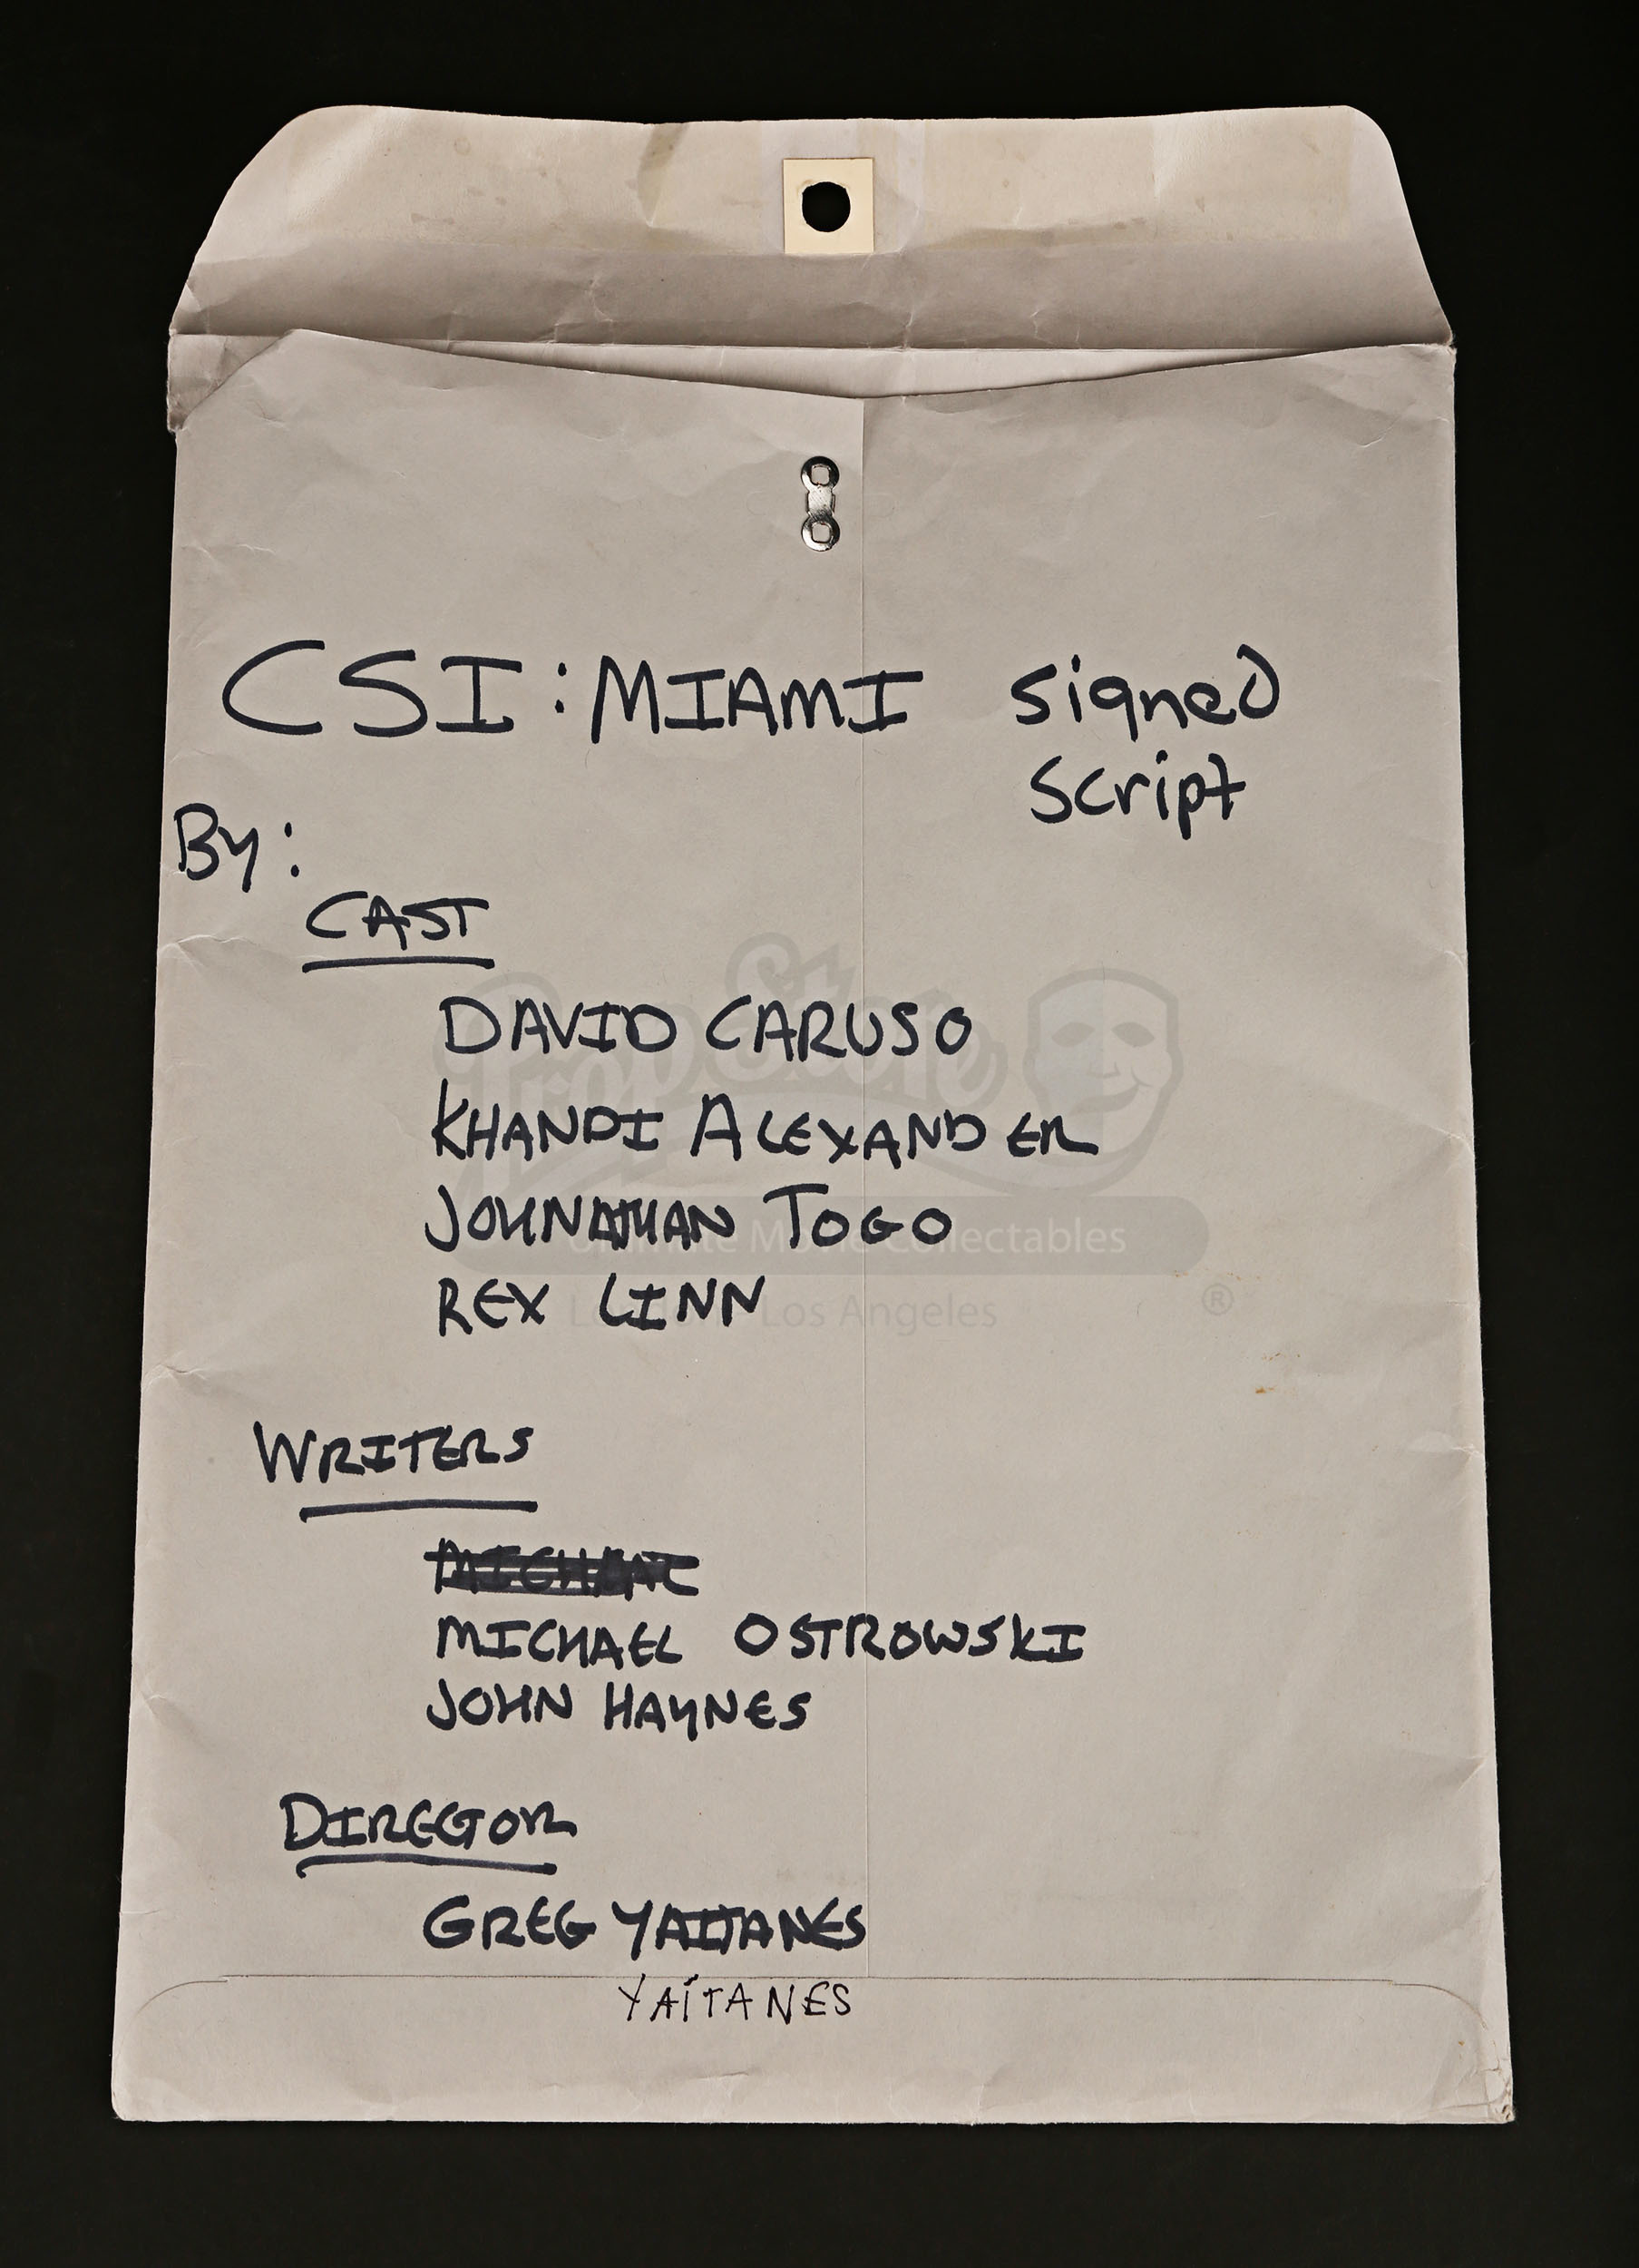 CSI: MIAMI signed
script
By:
CAST
DAVID CARUSO
KHANDI ALEXANDER
JOHNATHAN TOGO
REX LINN
WRITERS
MICHAEL OSTROWSKI
JOHN HAYNES
DIRECTOR
GREG YAITANES
YAITANES
Prop Store
Ultimate Movie Collectables
London - Los Angeles
®